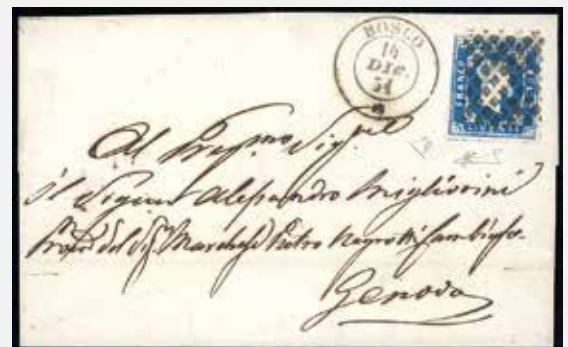 BOSCO
14
DIC.
51
FRANCO
Al Preg.mo Sig.
il Signor Alessandro Migliorini
del Sig. Marchese Pietro Negrotti Cambiaso.
Genova